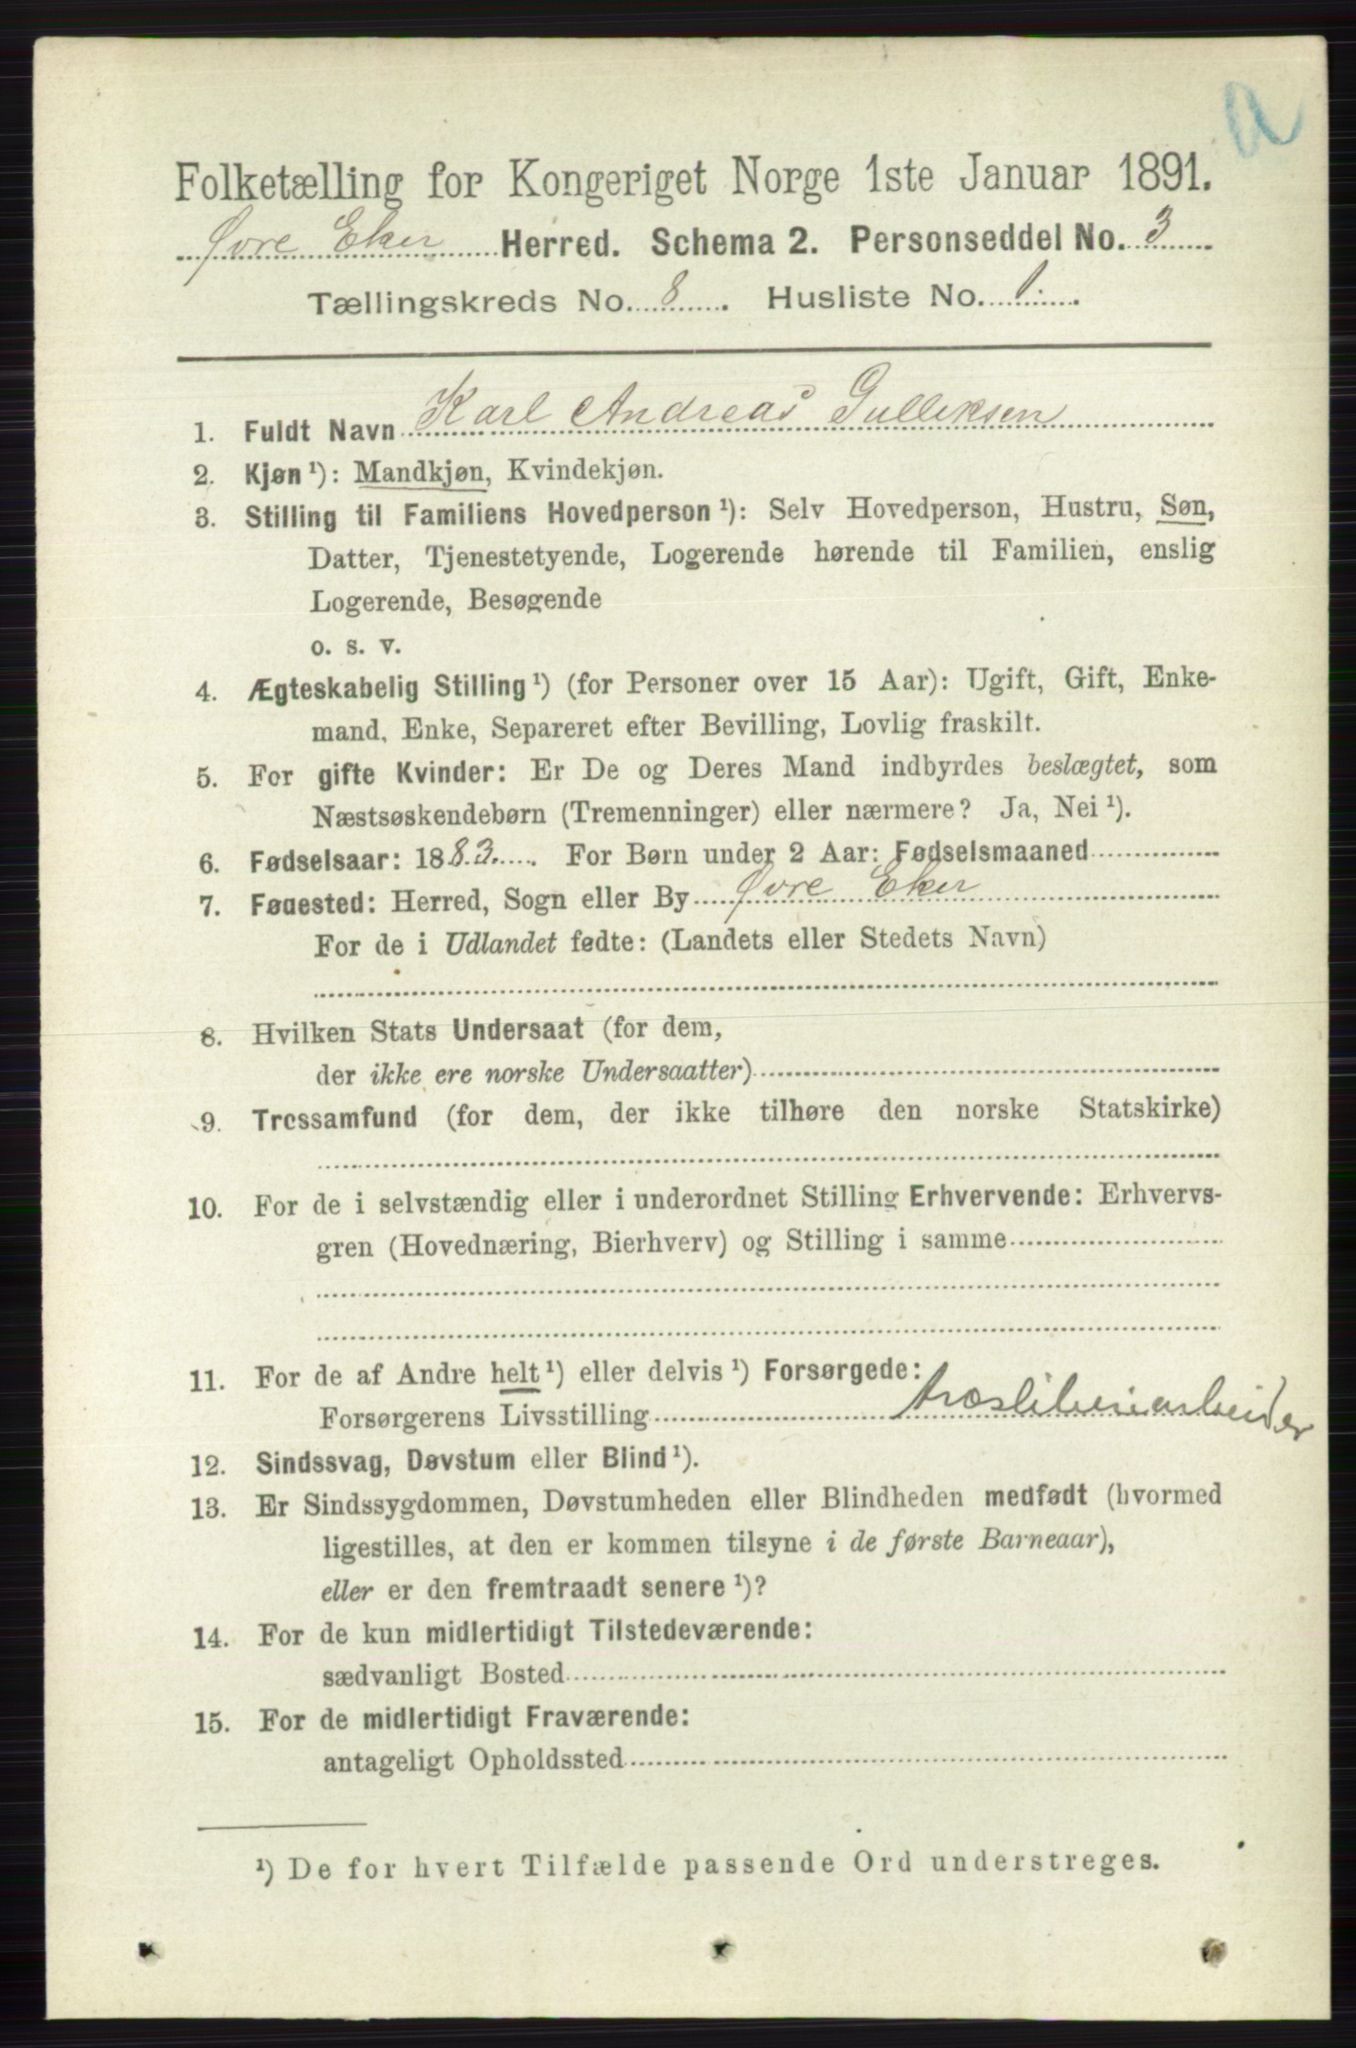 a
Folketælling for Kongeriget Norge 1ste Januar 1891.
Øvre Eker Herred. Schema 2. Personseddel No. 3
Tællingskreds No. 8. Husliste No. 1.
1. Fuldt Navn Karl Andreas Gulliksen
2. Kjøn¹): Mandkjøn, Kvindekjøn.
3. Stilling til Familiens Hovedperson¹): Selv Hovedperson, Hustru, Søn,
Datter, Tjenestetyende, Logerende hørende til Familien, enslig
Logerende, Besøgende
o. s. v.
4. Ægteskabelig Stilling¹) (for Personer over 15 Aar): Ugift, Gift, Enke-
mand, Enke, Separeret efter Bevilling, Lovlig fraskilt.
5. For gifte Kvinder: Er De og Deres Mand indbyrdes beslægtet, som
Næstsøskendebørn (Tremenninger) eller nærmere? Ja, Nei¹).
6. Fødselsaar: 1883. For Børn under 2 Aar: Fødselsmaaned
7. Fødested: Herred, Sogn eller By Øvre Eker
For de i Udlandet fødte: (Landets eller Stedets Navn)
8. Hvilken Stats Undersaat (for dem,
der ikke ere norske Undersaatter)
9. Trossamfund (for dem, der ikke tilhøre den norske Statskirke)
10. For de i selvstændig eller i underordnet Stilling Erhvervende: Erhvervs-
gren (Hovednæring, Bierhverv) og Stilling i samme
11. For de af Andre helt¹) eller delvis¹) Forsørgede:
Forsørgerens Livsstilling træsliberiarbeider
12. Sindssvag, Døvstum eller Blind¹).
13. Er Sindssygdommen, Døvstumheden eller Blindheden medfødt (hvormed
ligestilles, at den er kommen tilsyne i de første Barneaar),
eller er den fremtraadt senere¹)?
14. For de kun midlertidigt Tilstedeværende:
sædvanligt Bosted
15. For de midlertidigt Fraværende:
antageligt Opholdssted
¹) De for hvert Tilfælde passende Ord understreges.